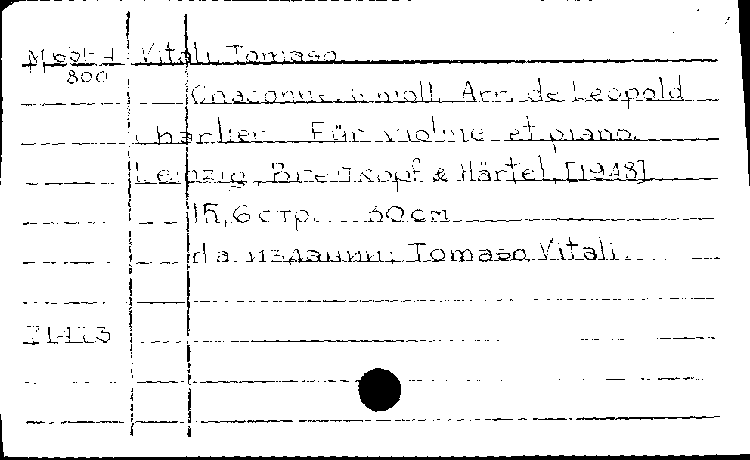 Vitali, Tomaso
800
Chaconne, moll. Arr. de Leopold
Charlier. Für violine et piano.
Leipzig, Breitkopf & Härtel, [1948]
15, 6 стр. 30 см
На издании: Tomaso Vitali.